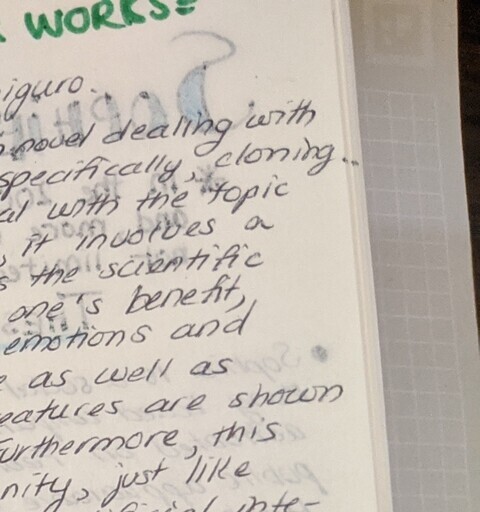 WORKS:
iguro.
novel dealing with
specifically, cloning...
al with the topic
, it involves a
s the scientific
one's benefit,
emotions and
e as well as
eatures are shown
urthermore, this
nity, just like
inte-